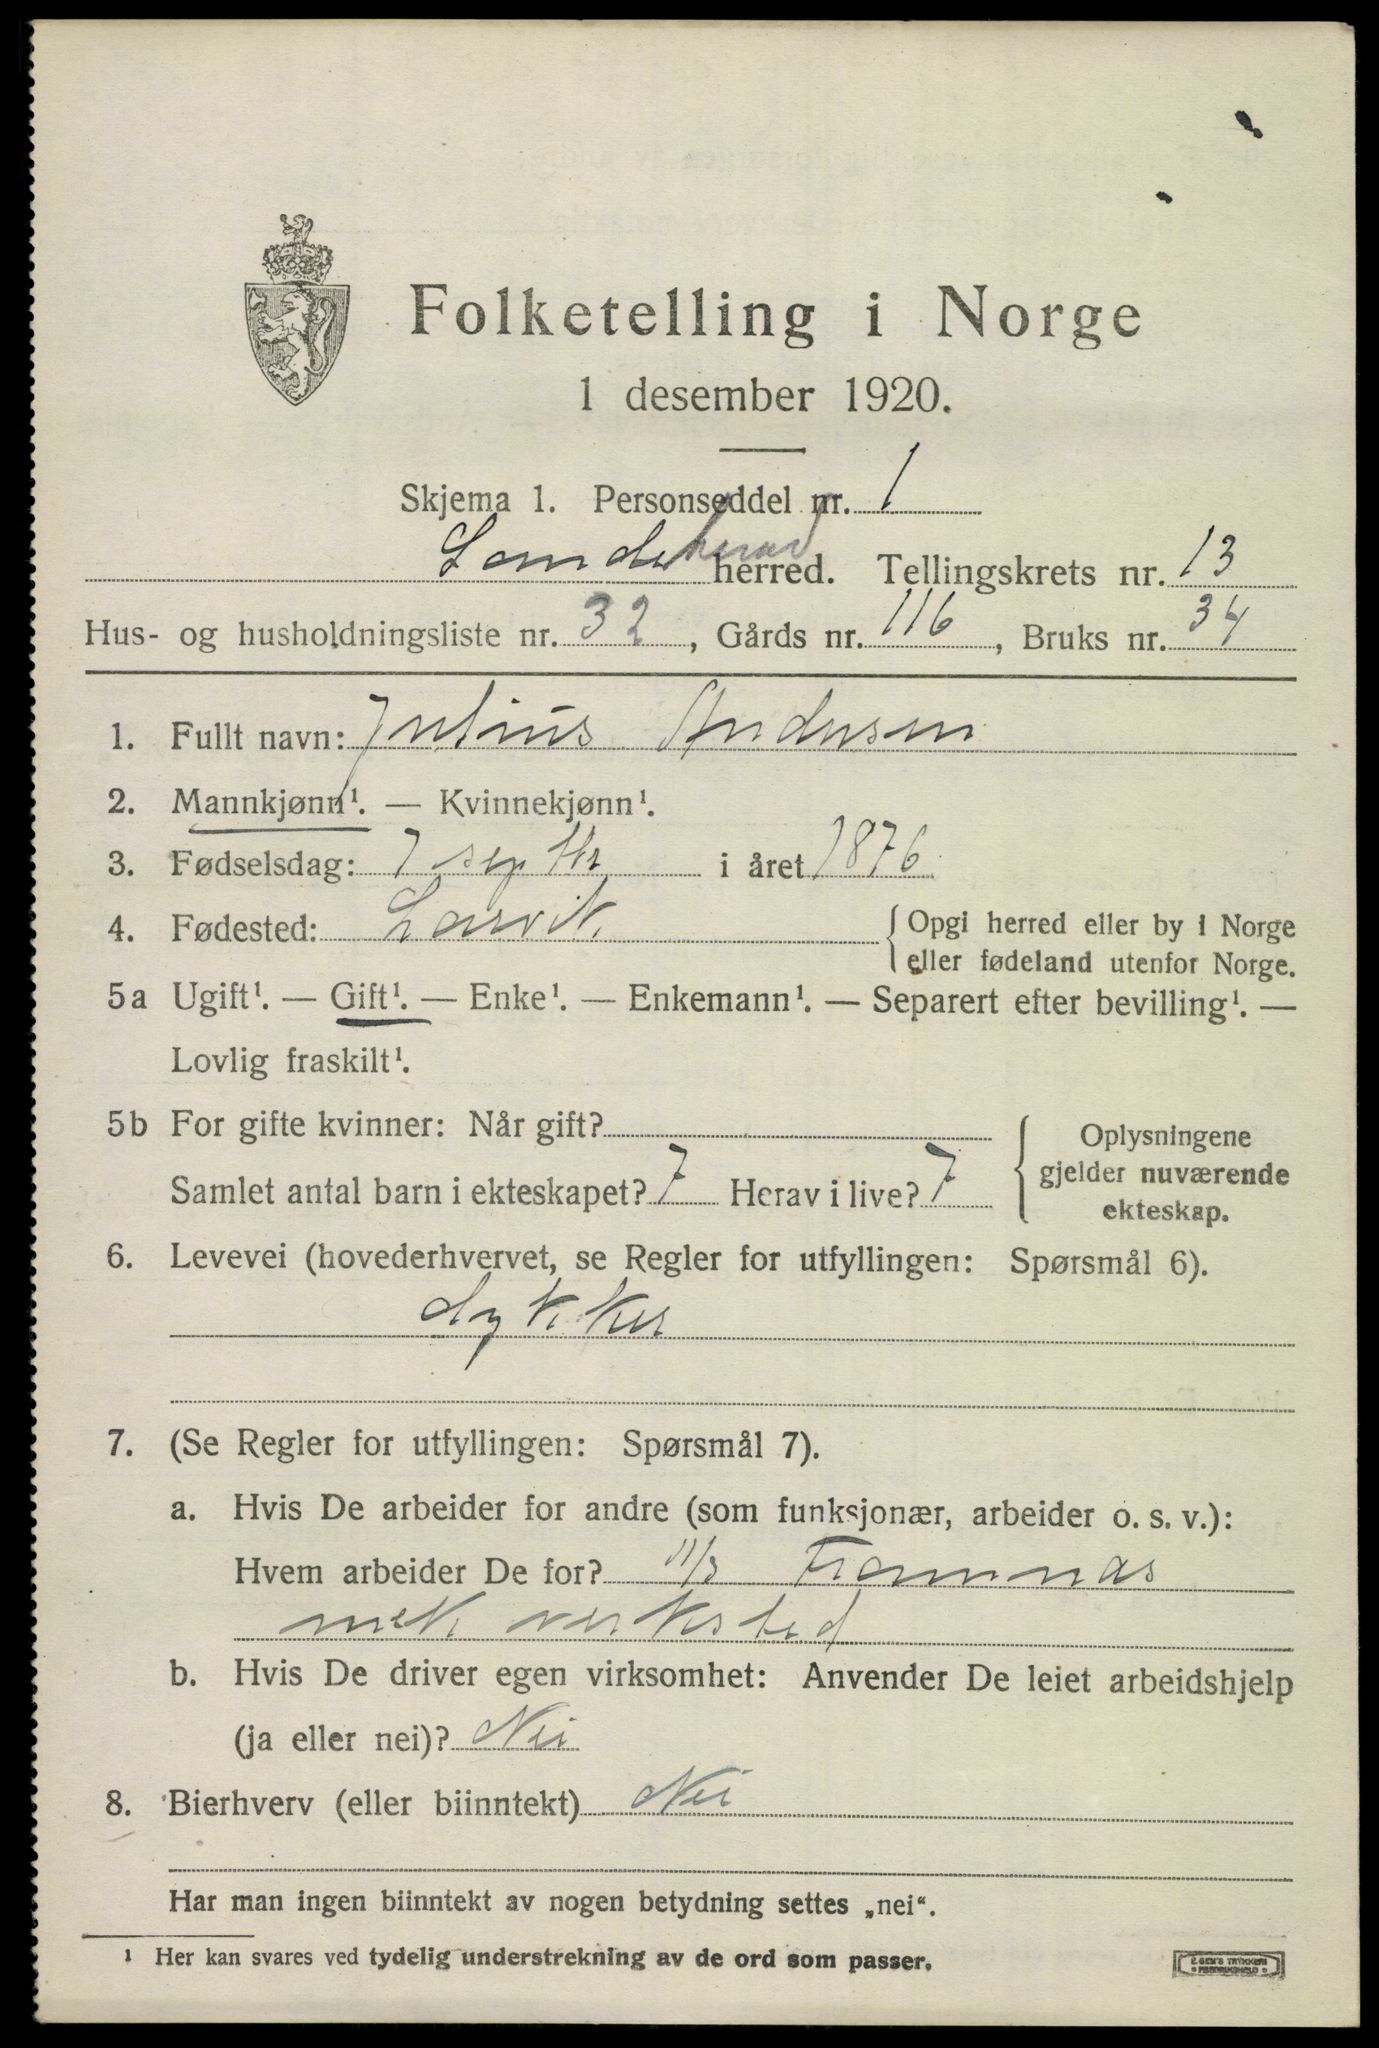 Folketelling i Norge
1 desember 1920.
Skjema 1. Personseddel nr. 1
Sandeherad herred. Tellingskrets nr. 13
Hus- og husholdningsliste nr. 32, Gårds nr. 116, Bruks nr. 34
1. Fullt navn: Julius Andersen
2. Mannkjønn¹. — Kvinnekjønn¹.
3. Fødselsdag: 7 septbr i året 1876
4. Fødested: Larvik. Opgi herred eller by i Norge
eller fødeland utenfor Norge.
5a Ugift¹. — Gift¹. — Enke¹. — Enkemann¹. — Separert efter bevilling¹. —
Lovlig fraskilt¹.
5b For gifte kvinner: Når gift?
Samlet antal barn i ekteskapet? 7 Herav i live? 7
Oplysningene
gjelder nuværende
ekteskap.
6. Levevei (hovederhvervet, se Regler for utfyllingen: Spørsmål 6).
dykker
7. (Se Regler for utfyllingen: Spørsmål 7).
a. Hvis De arbeider for andre (som funksjonær, arbeider o. s. v.):
Hvem arbeider De for? Framnæs
mek verksted
b. Hvis De driver egen virksomhet: Anvender De leiet arbeidshjelp
(ja eller nei)? Nei
8. Bierhverv (eller biinntekt) Nei
Har man ingen biinntekt av nogen betydning settes „nei“.
¹ Her kan svares ved tydelig understrekning av de ord som passer.